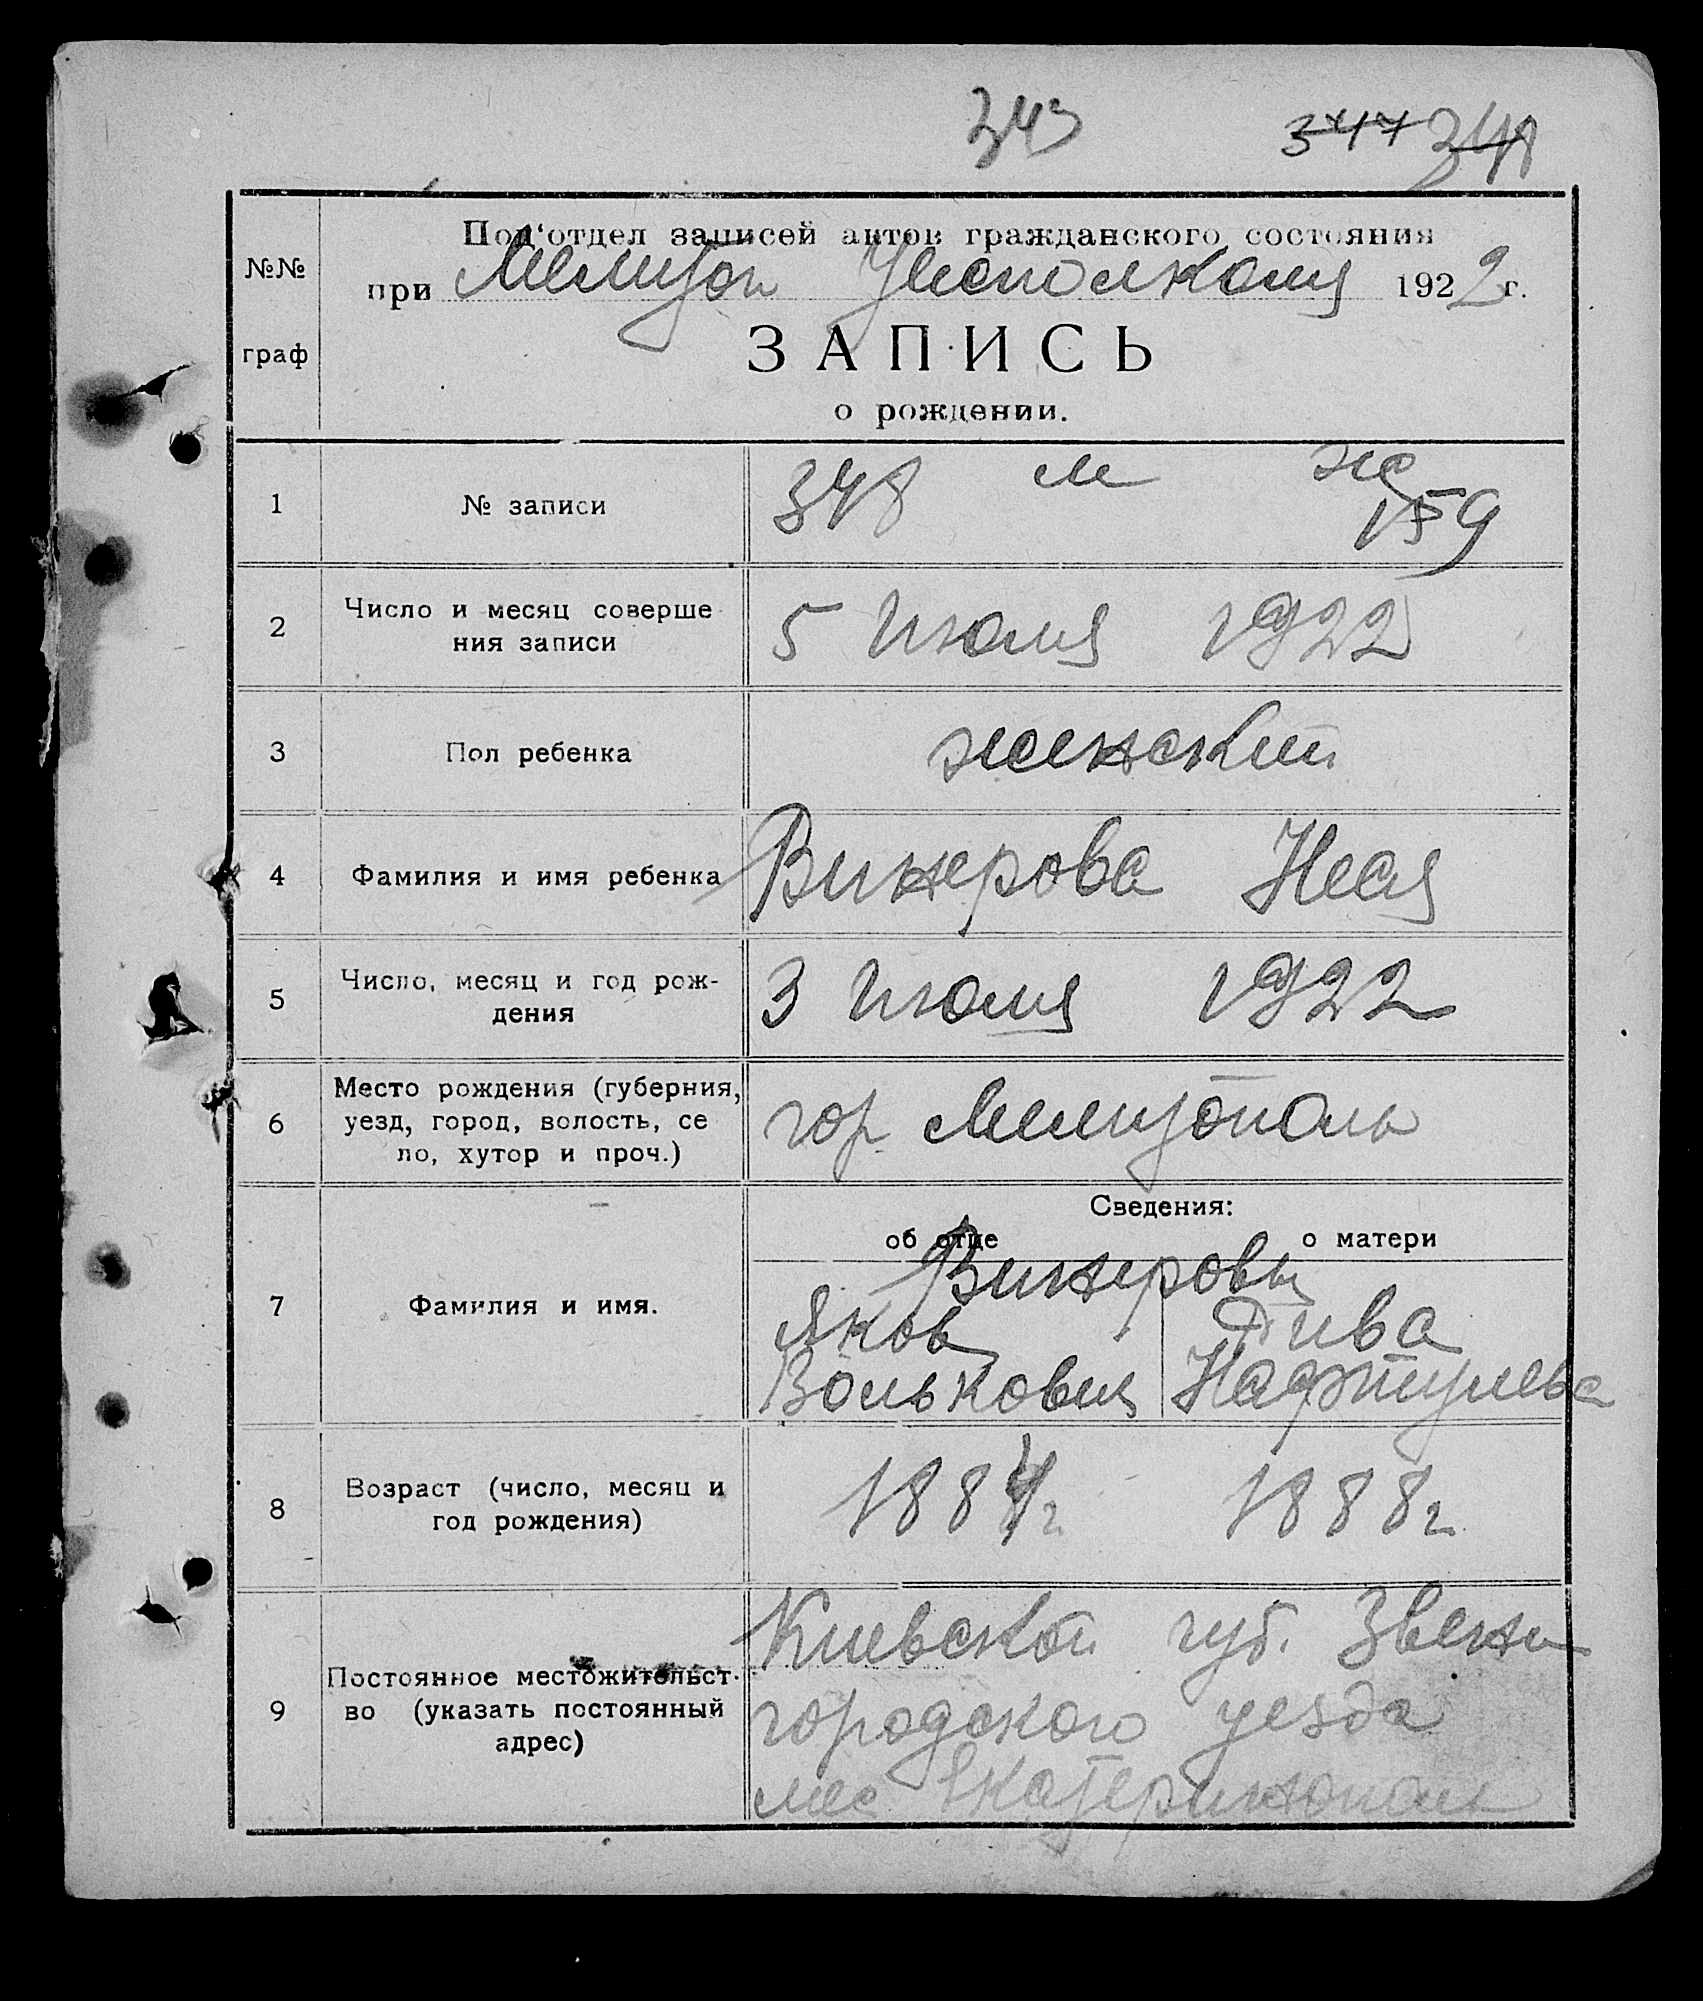 343 347 348
Под'отдел записей актов гражданского состояния
№№
при Мелитоп Уисполкома 1922 г.
граф
ЗАПИСЬ
о рождении.
1 № записи 348 м ж
159
2 Число и месяц соверше
ния записи 5 Июля 1922
3 Пол ребенка женский
4 Фамилия и имя ребенка Винерова Неся
5 Число, месяц и год рож-
дения 3 Июля 1922
6 Место рождения (губерния,
уезд, город, волость, се
ло, хутор и проч.) гор Мелитополь
Сведения:
об отце о матери
Винеровы
7 Фамилия и имя. Яков Рива
Волькович Нафтулева
8 Возраст (число, месяц и
год рождения) 1884г 1888г
Киевской губ. Звени
9 Постоянное местожительст-
во (указать постоянный
адрес) городского уезда
мес Екатеринополь